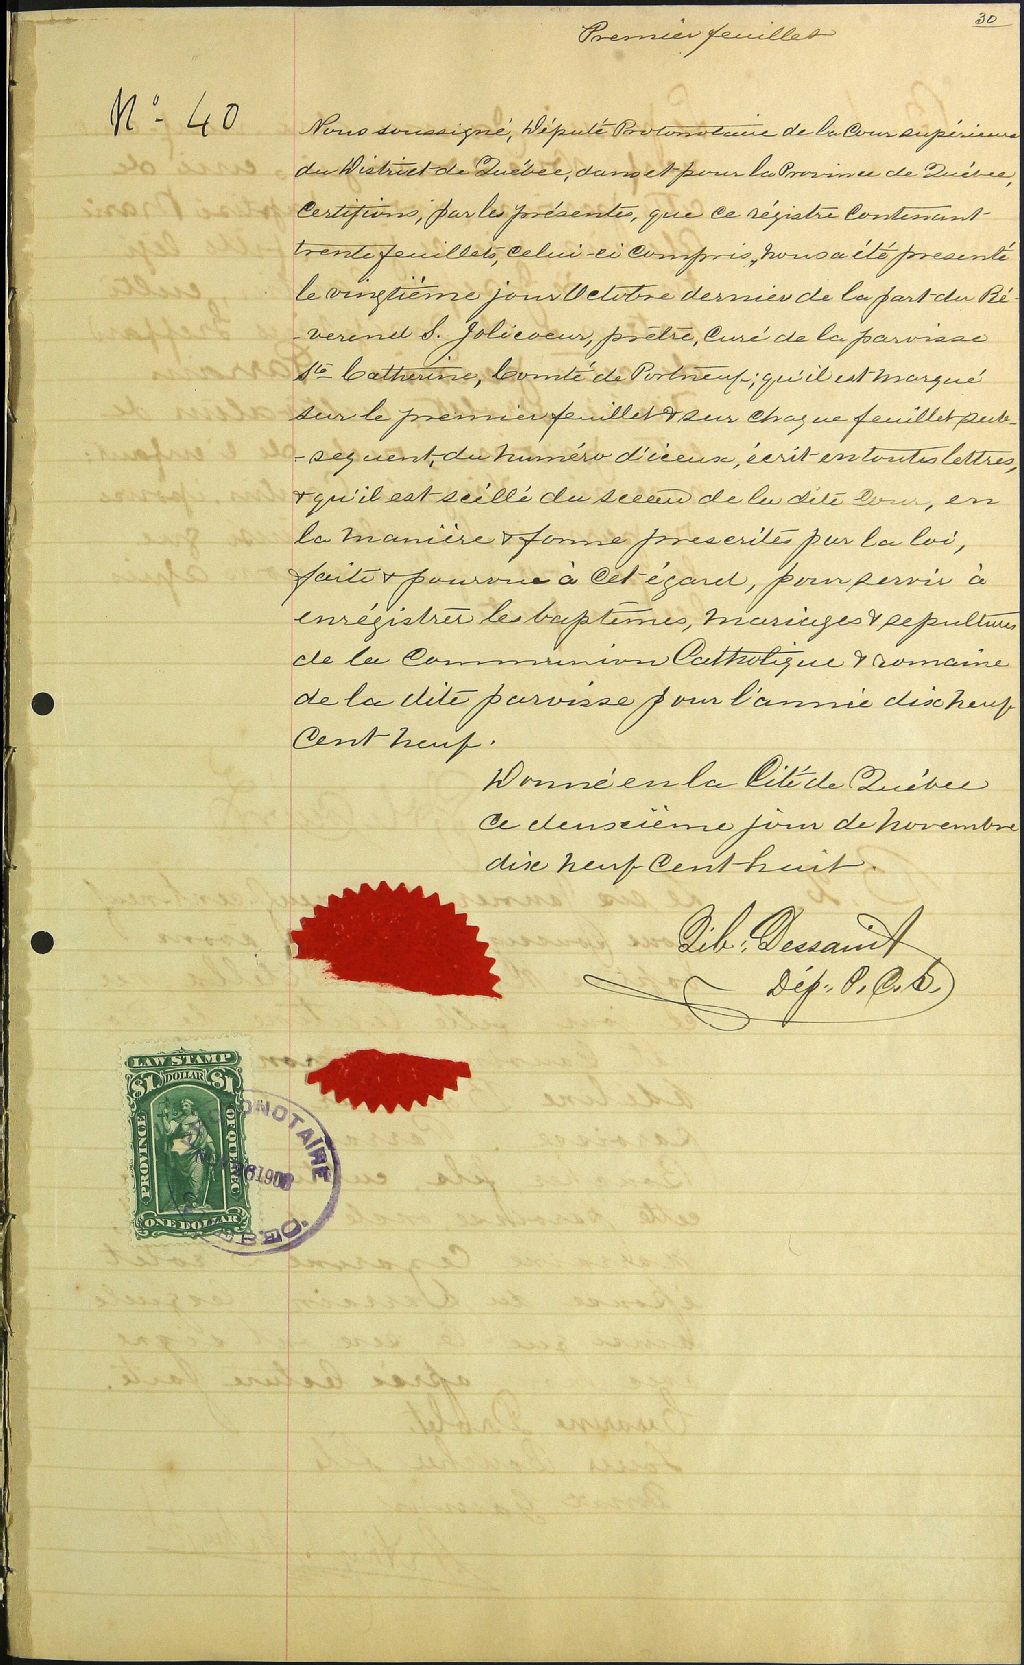 30
Premier feuillet
No. 40
Nous soussigné, Député Protonotaire de la Cour supérieure
du District de Québec, dans et pour la Province de Québec,
Certifions, par les présentes, que ce régistre Contenant
trente feuillets, celui-ci compris, nous a été présenté
le vingtième jour Octobre dernier de la part du Ré-
-verend S. Jolicoeur, prêtre, Curé de la paroisse
Ste Catherine, Comté de Portneuf; qu'il est marqué
sur le premier feuillet & sur chaque feuillet sub-
-sequent, du numéro d'iceux, écrit en toutes lettres,
& qu'il est scéllé du sceau de la dite Cour, en
la manière & forme prescrites par la loi,
faite & pourvue à cet égard, pour servir à
enrégistrer les baptêmes, mariages & sepultures
de la Communion Catholique & romaine
de la dite paroisse pour l'année dix neuf
Cent neuf.
Donné en la Cité de Québec
ce deuxième jour de novembre
dix neuf cent huit.
Gib. Dessault
Dép. P. C. S.
LAW STAMP
$1 DOLLAR $1
PROVINCE OF QUEBEC
ONE DOLLAR
PROTONOTAIRE
1908
QUEBEC